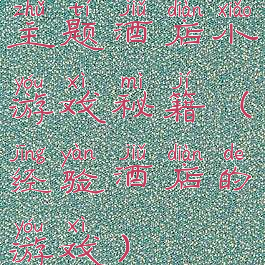 zhǔ tí jiǔ diàn xiǎo
主题酒店小
yóu xì mì jí
游戏秘籍（
jīng yàn jiǔ diàn de
经验酒店的
yóu xì
游戏）